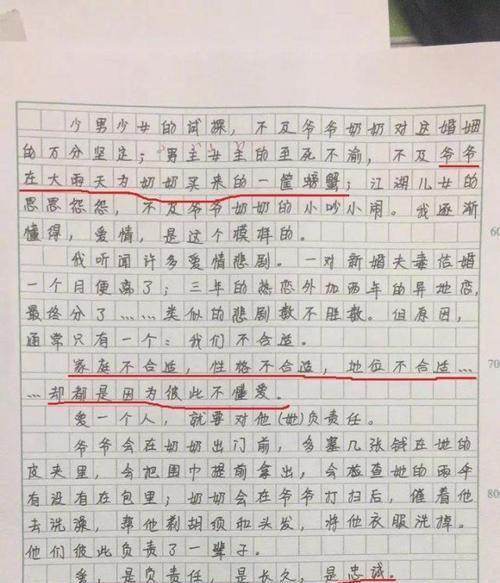 少男少女的试探，不及爷爷奶奶对这婚姻
的万分坚定；男主女主的至死不渝，不及爷爷
在大雨天为奶奶买来的一筐螃蟹；江湖儿女的
恩恩怨怨，不及爷爷奶奶的小吵小闹。我逐渐
懂得，爱情，是这个模样的。
60
我听闻许多爱情悲剧。一对新婚夫妻结婚
一个月便离了；三年的热恋外加两年的异地恋，
最终分了……类似的悲剧数不胜数。但原因，
通常只有一个：我们不合适。
家庭不合适，性格不合适，地位不合适…
70
…却都是因为彼此不懂爱。
爱一个人，就要对他(她)负责任。
爷爷会在奶奶出门前，多塞几张钱在她的
皮夹里，会把围巾提前拿出，会检查她的雨伞
有没有在包里；奶奶会在爷爷打扫后，催着他
80
去洗澡，帮他剃胡须和头发，将他衣服洗掉。
他们彼此负责了一辈子。
爱，是负责任，是长久，是忠诚。